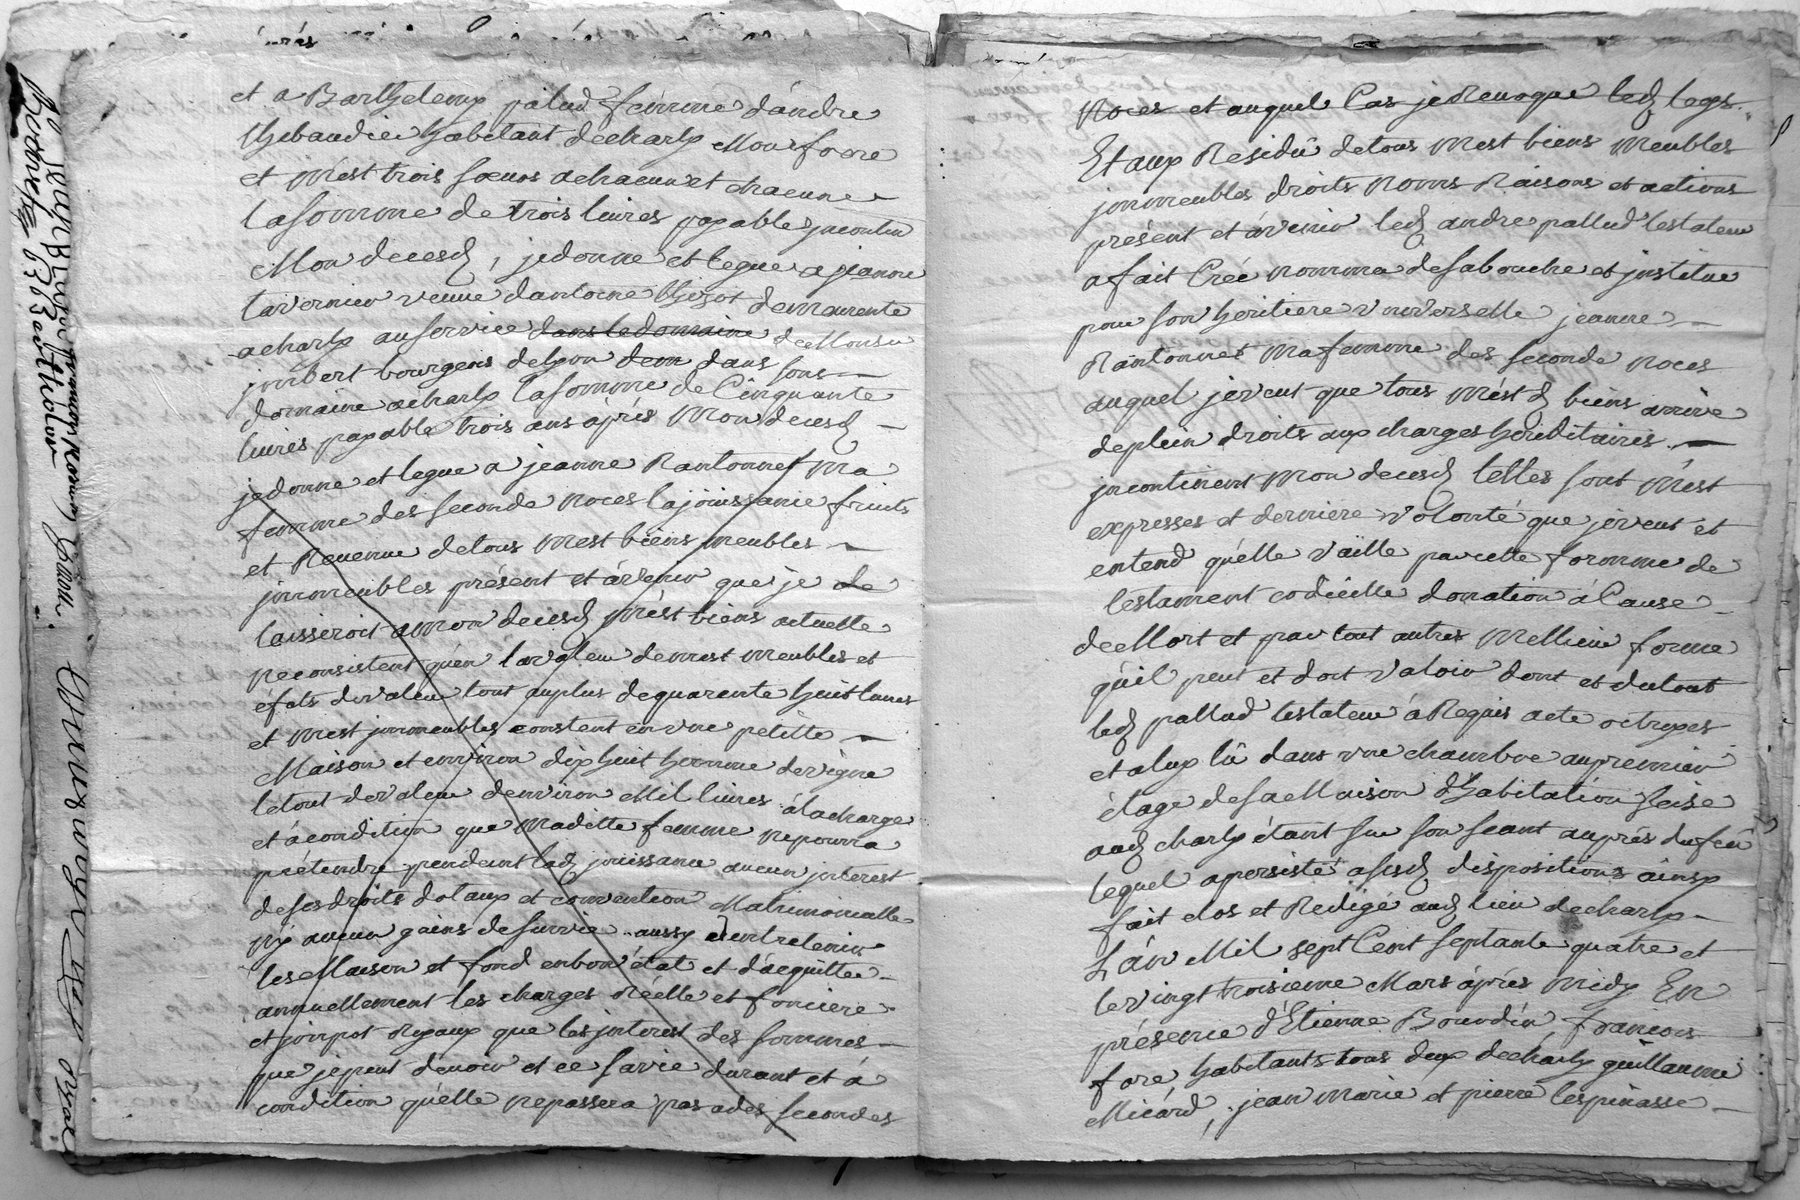 et a Barthelemy palud femme d'andre
thibaudier habitant decharly Mon frere
et mést trois soeurs achacun et chacune
lasomme de trois livres payable jncontin
Mon decesd, jedonne et legue a jeanne
tavernier veuve dantoine demeurante
acharly auservice dans le domaine deMonsr
jmbert bourgeois delyon dem dans sons
domaine acharly lasomme de Cinquante
livres payable trois ans aprés Mon decesd
jedonne et legue a jeanne Rantonnet ma
femme des seconde noces lajoüissance fruits
et Revenue detous mest biens meubles
jmmeubles présent et ávenir que je de
laisseroit amon decesd mést biens actuelle
neconsistent qu'en lavaleur demest meubles et
éfets devaleur tout auplus dequarente huit livres
et mést jmmeubles constent en une petitte
Maison et environ dix huit homme devigne
letout devaleur denviron Mil livres álacharge
et ácondition que maditte femme nepourra
prétendre pendent lad jouissance aucun jnterest
deses droits dotaux et convention Matrimonialle
ny aucun gains de survie aussy d'entretenir
les Maison et fond enbon état et d'acquitter
annuellement les charges Réelle et fonciere
et jmpot Royaux que les jnterest des sommes
que jepeut devoir et ce savie durant et á
condition qu'elle nepassera pas ades secondes
Noces et auquel Cas jeRevoque led legs.
Et aux Residû detous mest biens meubles
jmmeubles droits noms Raisons et actions
présent et ávenir led andre pallud testateur
afait Créé nomma desabouche et jnstitue
pour son heritiere universelle jeanne
Rantonnet mafemme des seconde noces
auquel jeveut que tous mést d biens arrive
deplein droits aux charges hereditaires.
jncontinent mon decesd telles sont mést
expresses et derniere volonté que jeveut et
entend qu'elle vaille par cette forme de
testament codicille donation á Cause
deMort et par tout autres mellieur forme
qu'il peut et doit valoir dont et dutout
led pallud testateur á Requis acte octroyes
et alup lû dans une chambre aupremier
étage desaMaison d'habitation size
aud charly étant sur son seant auprés dufeu
lequel apersisté asesd dispositions ainsy
fait clos et Redigé aud lieu decharly
L'án Mil sept Cent septante quatre et
le vingt troisieme Mars áprés midy En
présence d'Etienne Bourdin, francois
fore, habitants tous deux decharly guillaume
Micárd, jean marie et pierre lespinasse